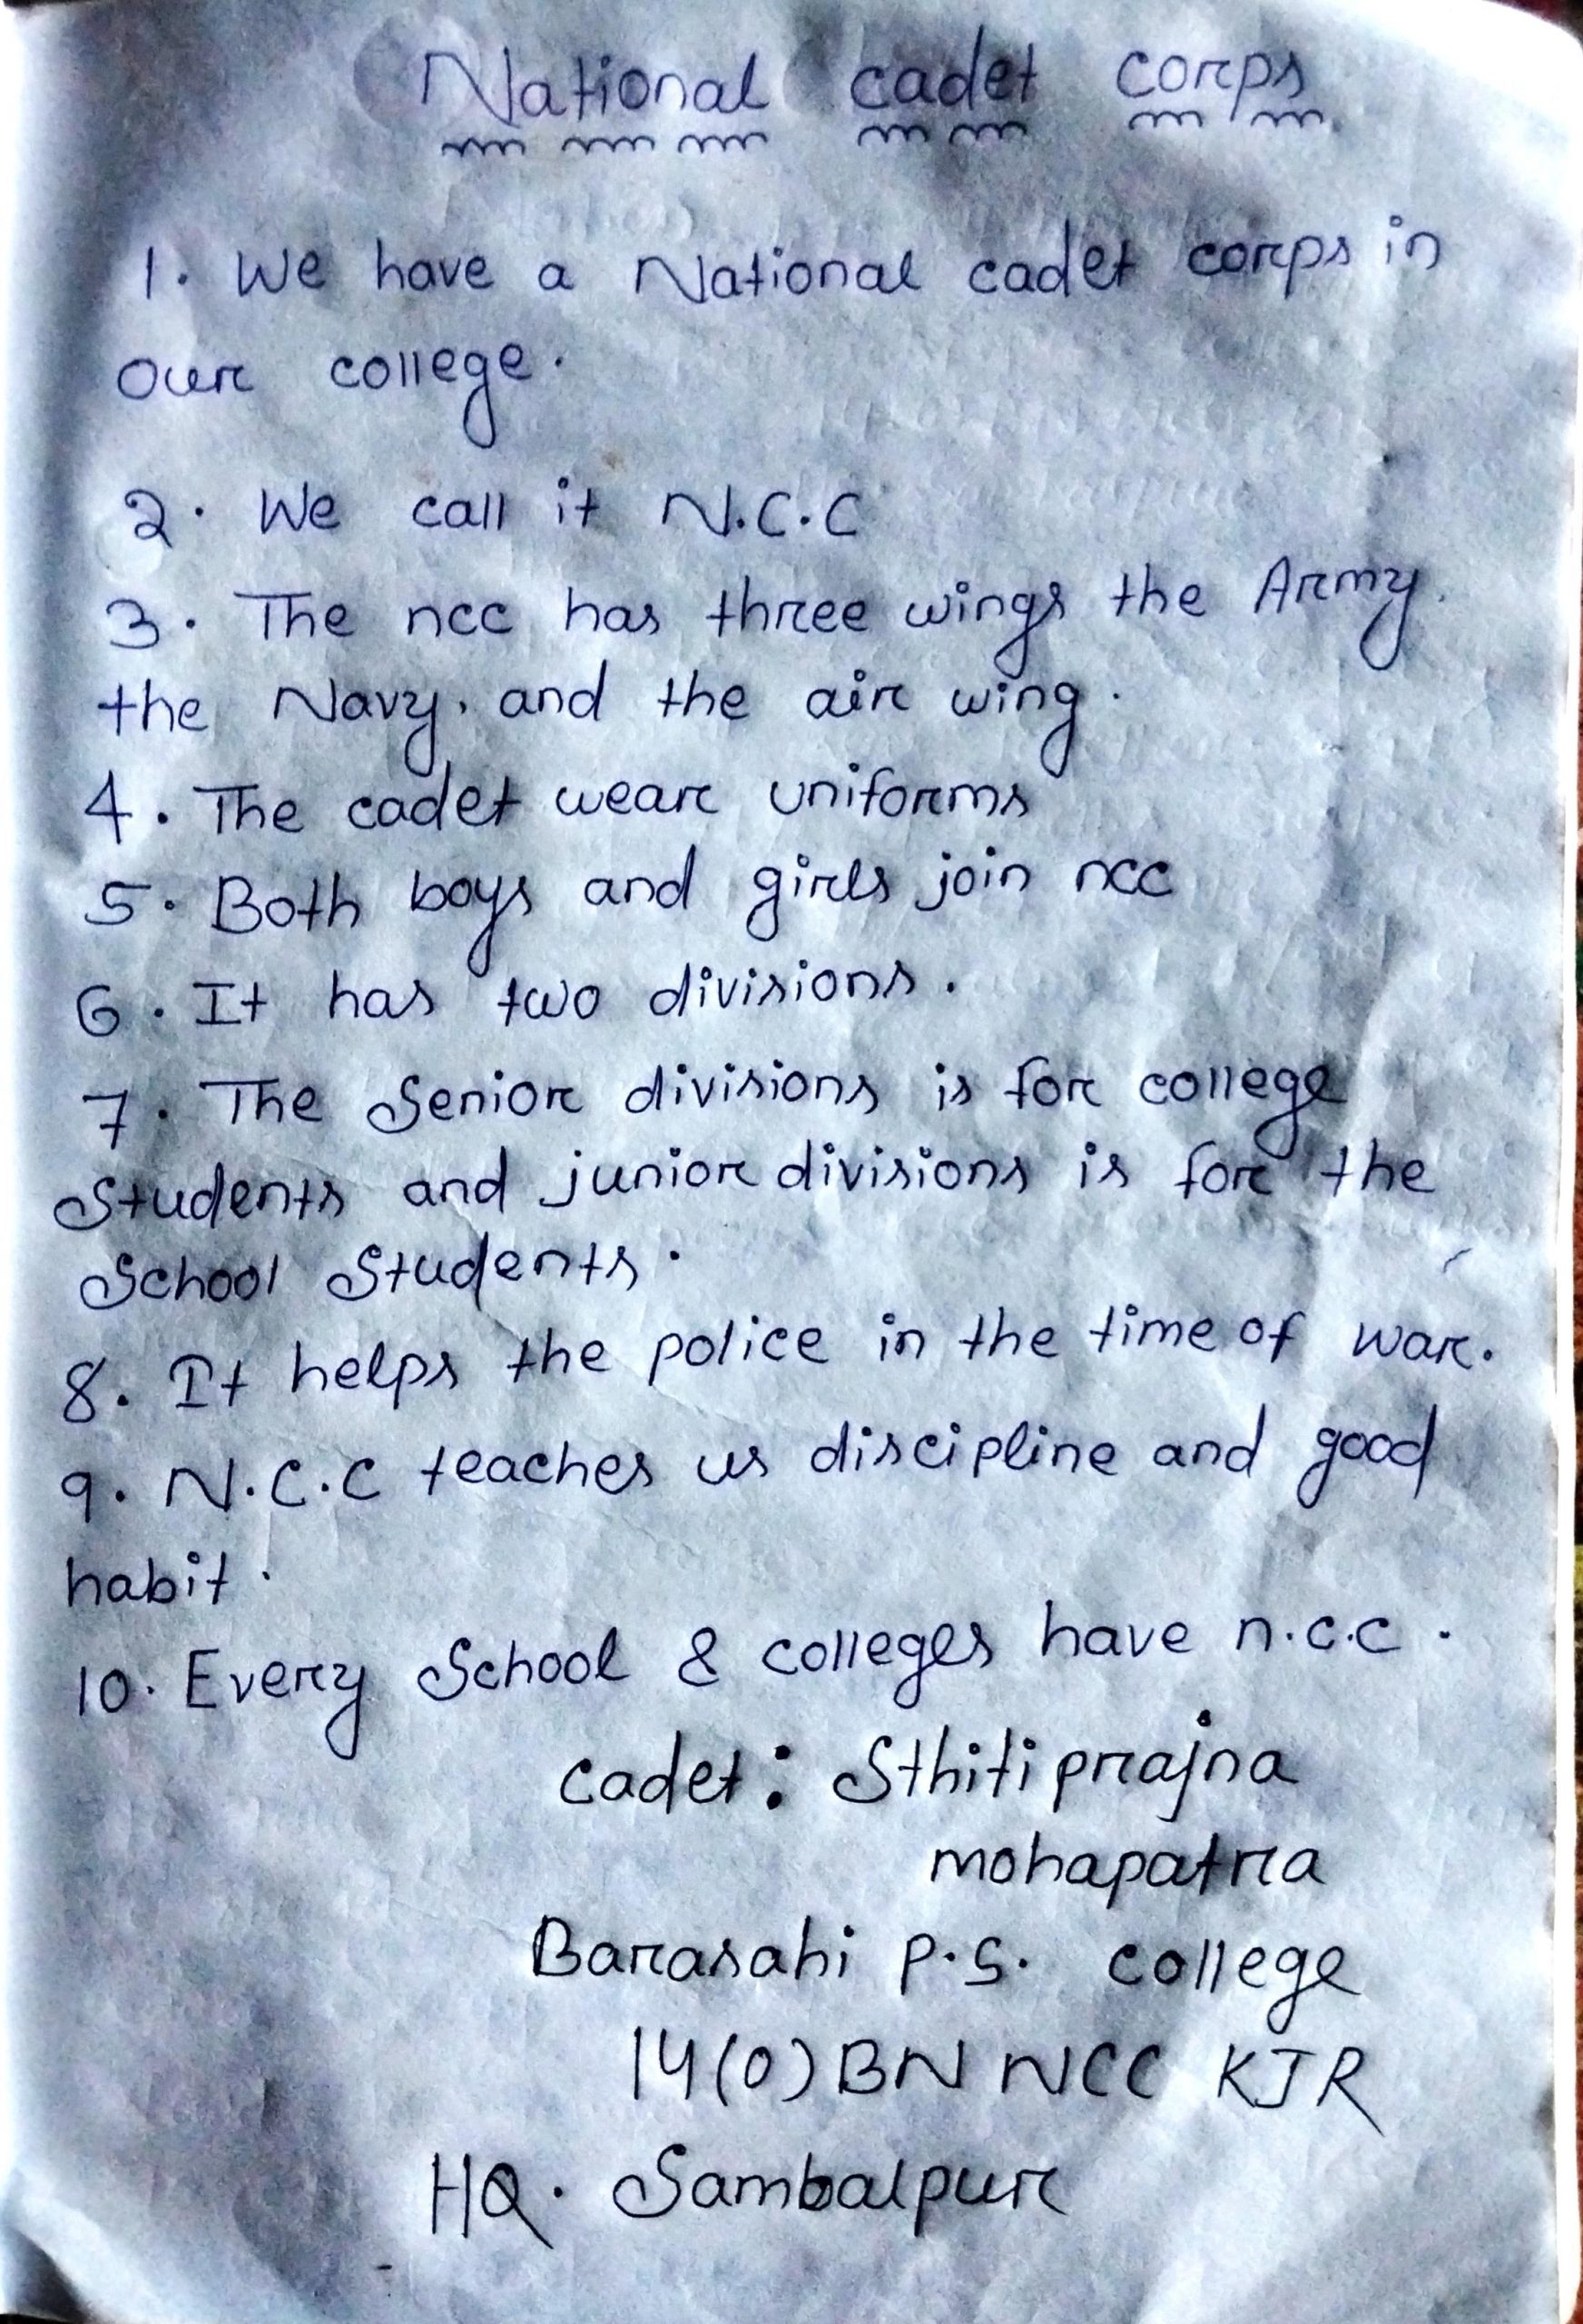 National cadet corps
1. We have a National cadet corps in
our college.
2. We call it N.C.C
3. The ncc has three wings the Army.
the Navy, and the air wing.
4. The cadet wear uniforms
5. Both boys and girls join ncc
6. It has two divisions.
7. The Senior divisions is for college
Students and junior divisions is for the
School Students.
8. It helps the police in the time of war.
9. N.C.C teaches us discipline and good
habit.
10. Every School & colleges have n.c.c.
cadet: Sthiti prajna
mohapatra
Barasahi P.S. college
14(O) BN NCC KJR
HQ. Sambalpur